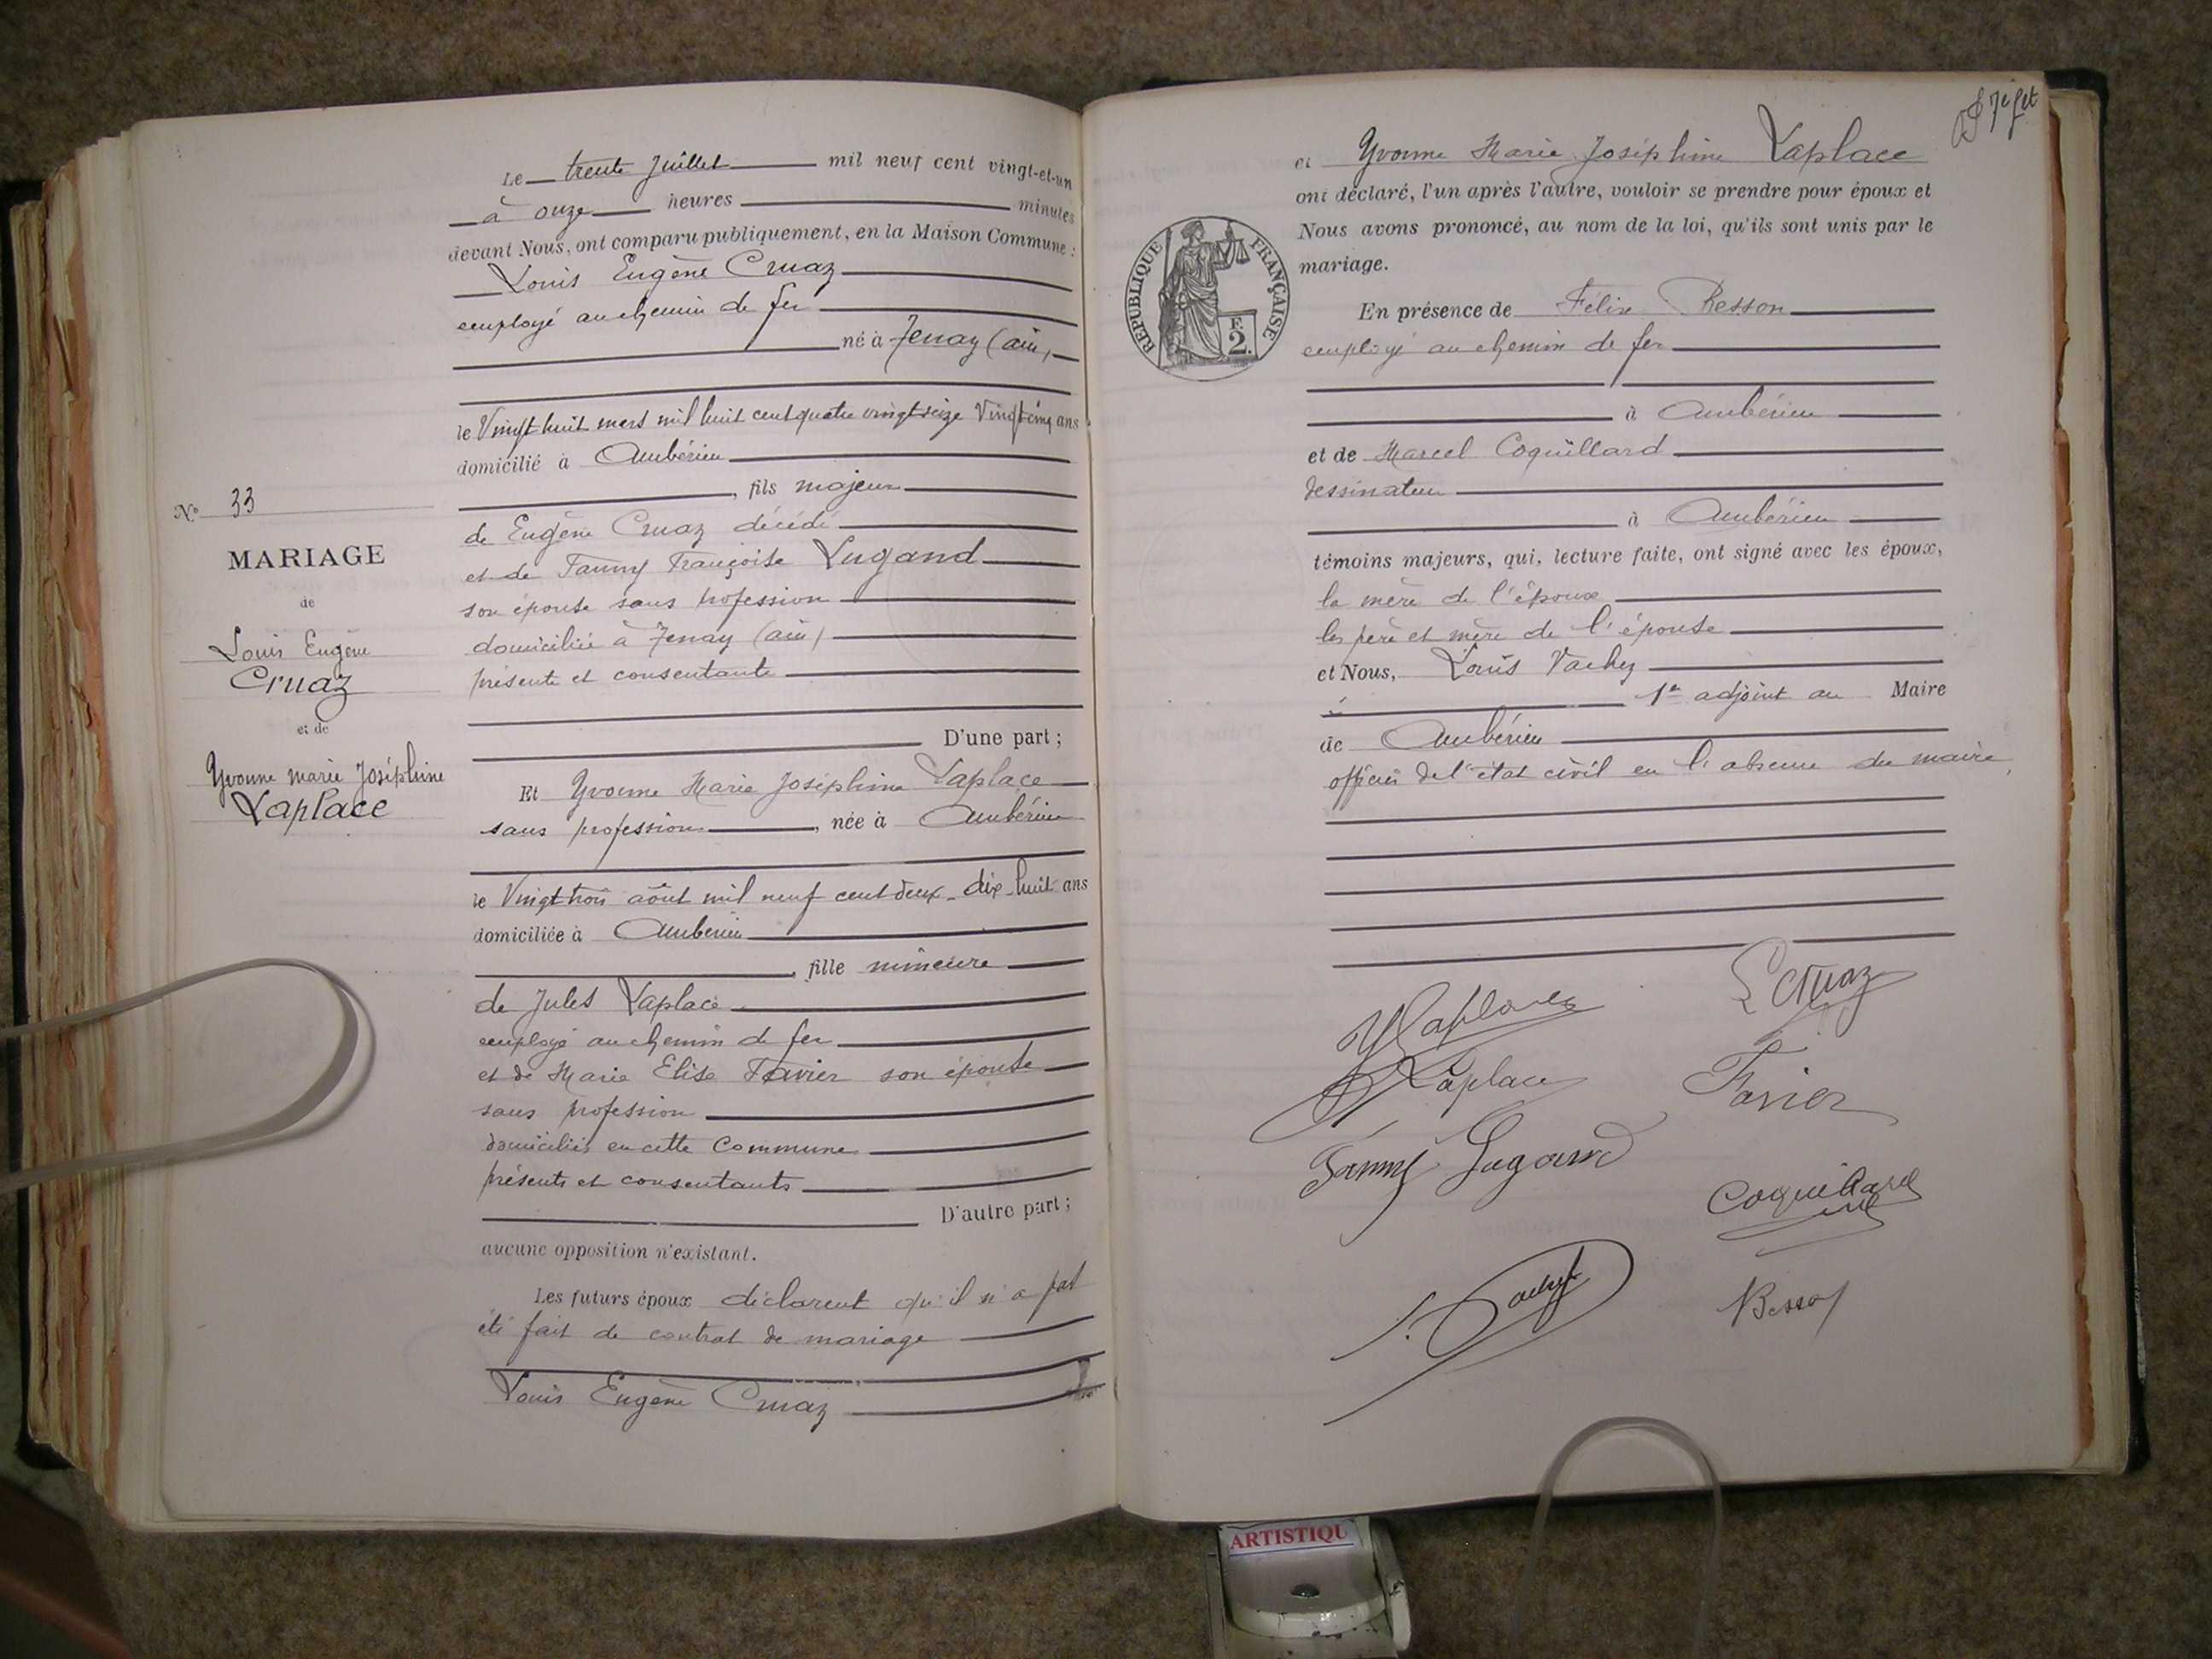 Le trente Juillet mil neuf cent vingt-et-un
à onze heures minutes
devant Nous, ont comparu publiquement, en la Maison Commune :
Louis Eugène Cruaz
employé au chemin de fer
né à Tenay (ain)
le Vingt huit mars mil huit cent quatre vingt seize Vingt cinq ans
domicilié à Ambérieu
, fils majeur
de Eugène Cruaz décédé
et de Fanny Françoise Lugand
son épouse sans profession
domiciliée à Tenay (ain)
présente et consentante
D'une part ;
Et Yvonne Marie Joséphine Laplace
sans profession, née à Ambérieu
le Vingt trois août mil neuf cent deux dix-huit ans
domiciliée à Ambérieu
, fille mineure
de Jules Laplace
employé au chemin de fer
et de Marie Elise Favier son épouse
sans profession
domiciliés en cette commune
présents et consentants
D'autre part ;
aucune opposition n'existant.
Les futurs époux déclarent qu'il n'a pas
été fait de contrat de mariage
Louis Eugène Cruaz
N° 33
MARIAGE
de
Louis Eugène
Cruaz
et de
Yvonne marie Joséphine
Laplace
et Yvonne Marie Joséphine Laplace
ont déclaré, l'un après l'autre, vouloir se prendre pour époux et
Nous avons prononcé, au nom de la loi, qu'ils sont unis par le
mariage.
RÉPUBLIQUE FRANÇAISE
F.
2.
En présence de Félix Besson
employé au chemin de fer
à Ambérieu
et de Marcel Coquillard
dessinateur
à Ambérieu
témoins majeurs, qui, lecture faite, ont signé avec les époux,
la mère de l'époux
les père et mère de l'épouse
et Nous, Louis Vachez
1er adjoint au Maire
de Ambérieu
officier de l'état civil en l'absence du maire
Y Laplace
L Cruaz
Laplace
Favier
Fanny Lugand
Coquillard
Besson
ARTISTIQU